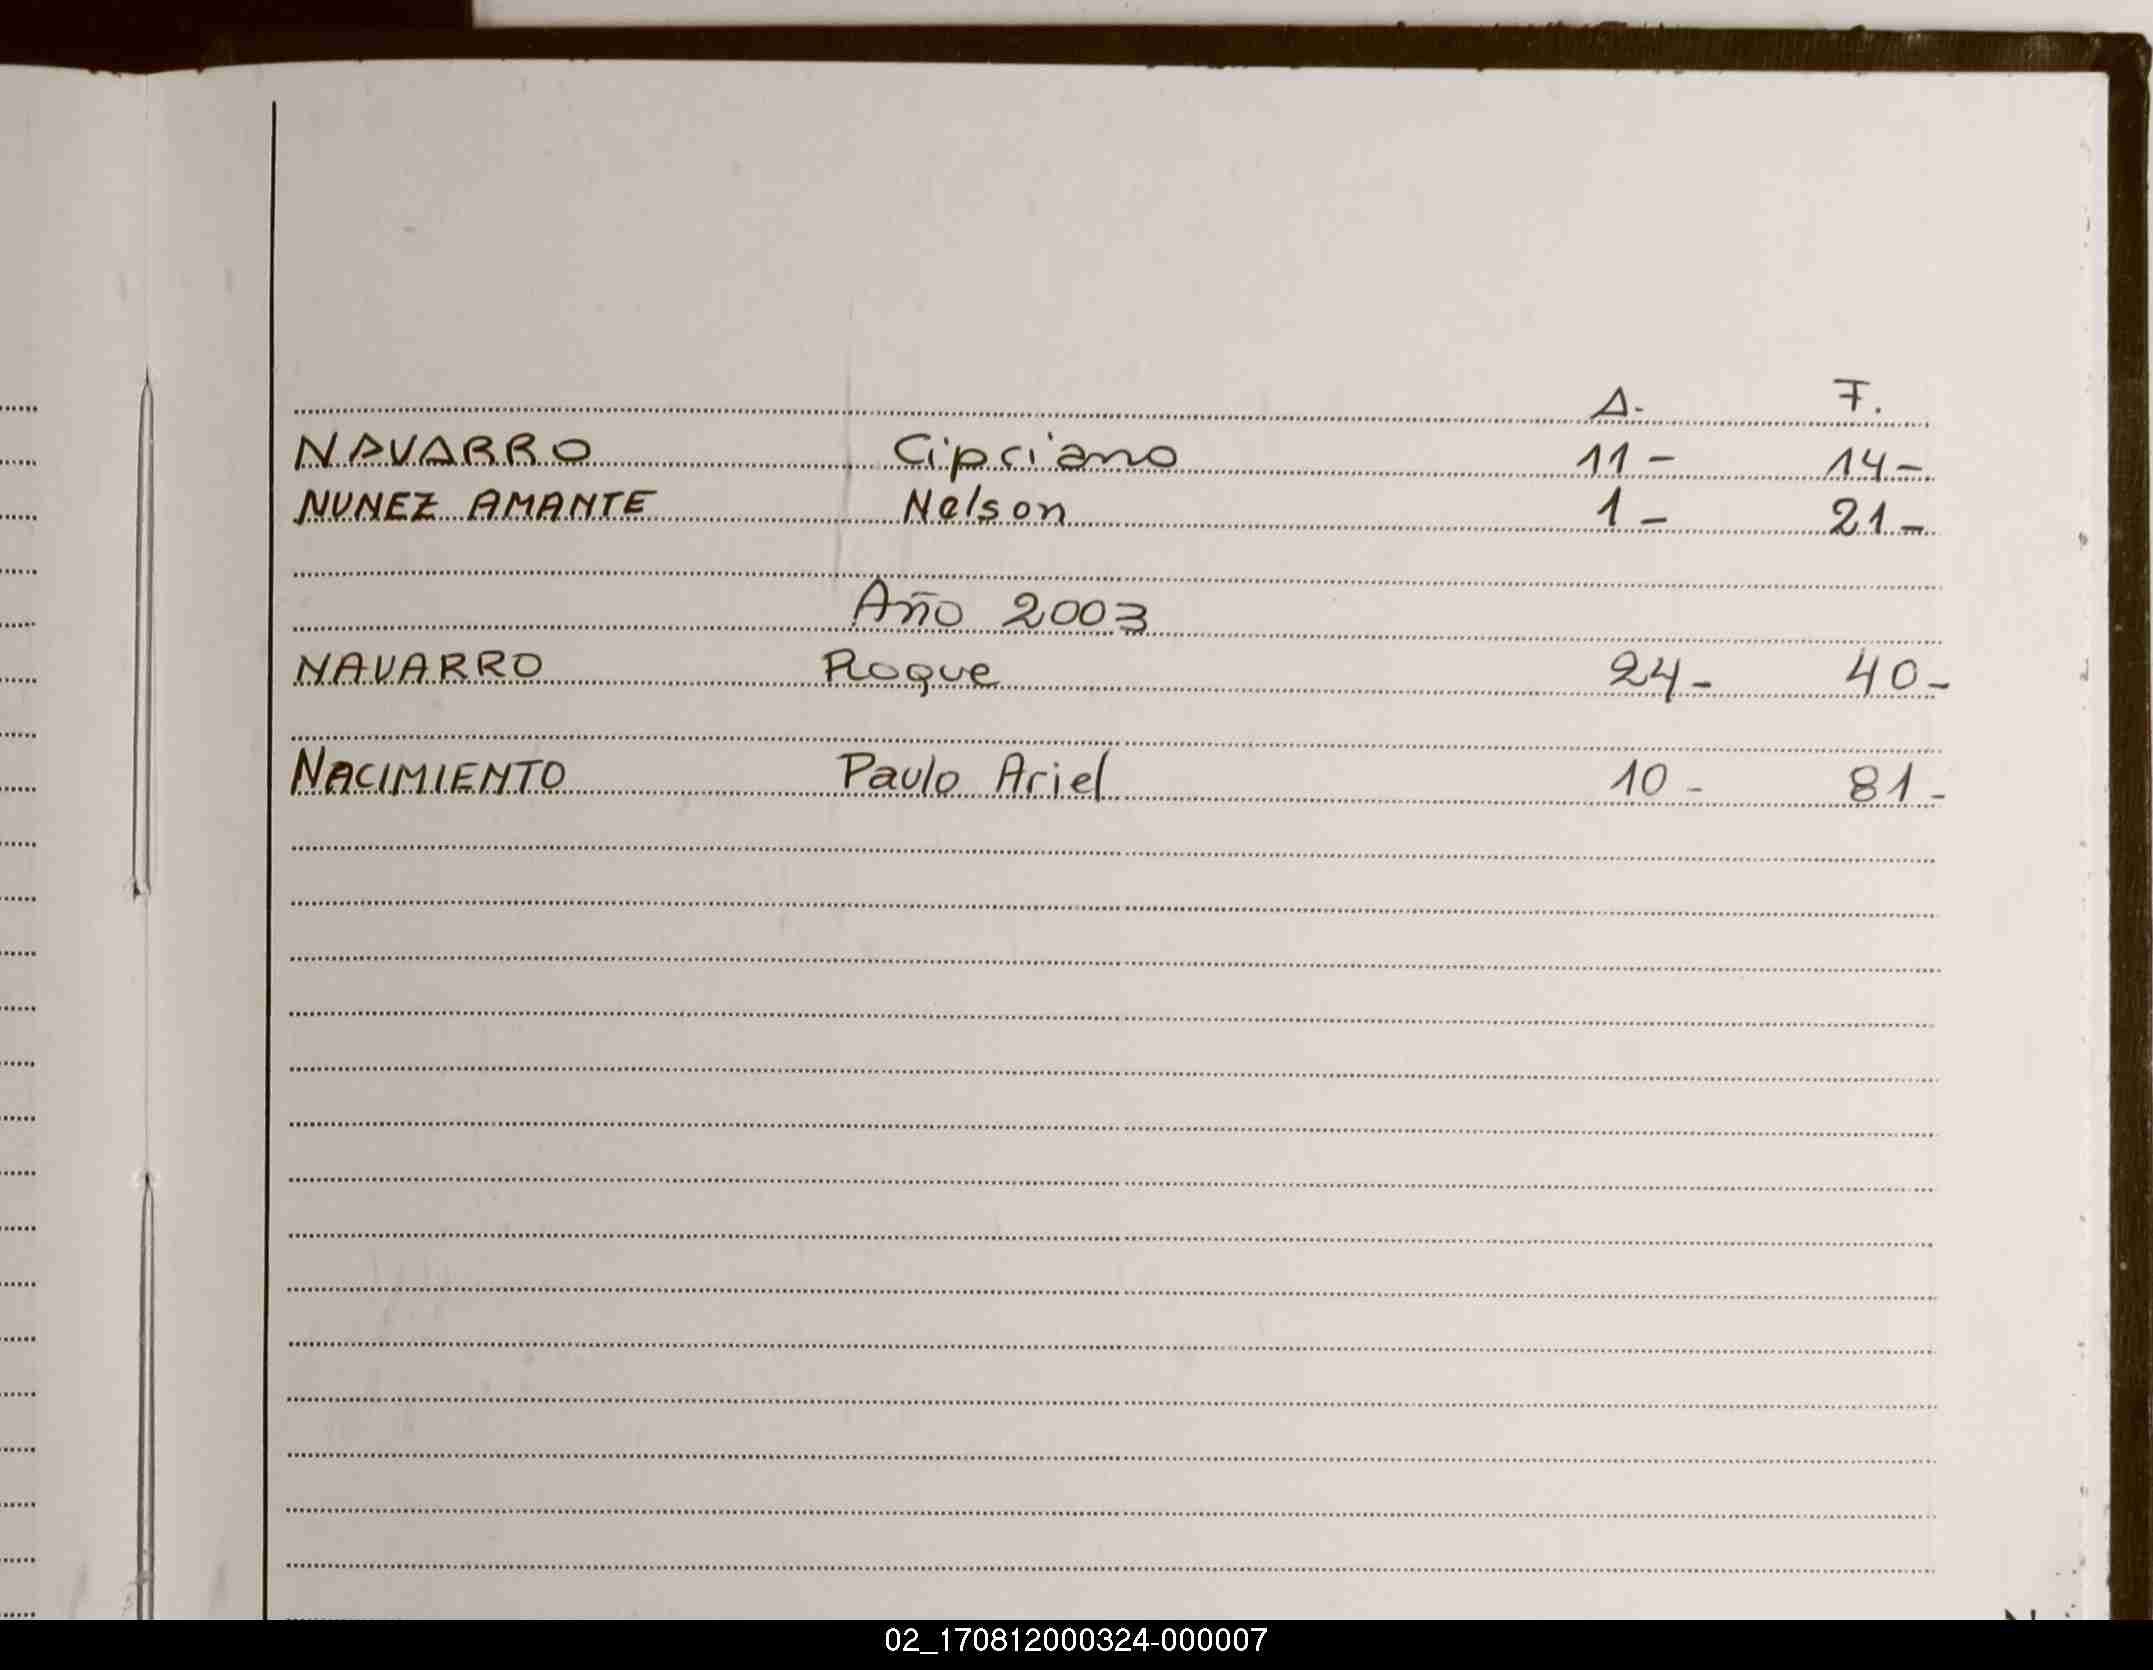 A. F.
NAVARRO Cipriano 11- 14-
NUNEZ AMANTE Nelson 1- 21-
Año 2003
NAVARRO Roque 24- 40-
NACIMIENTO Paulo Ariel 10- 81-
02_170812000324-000007